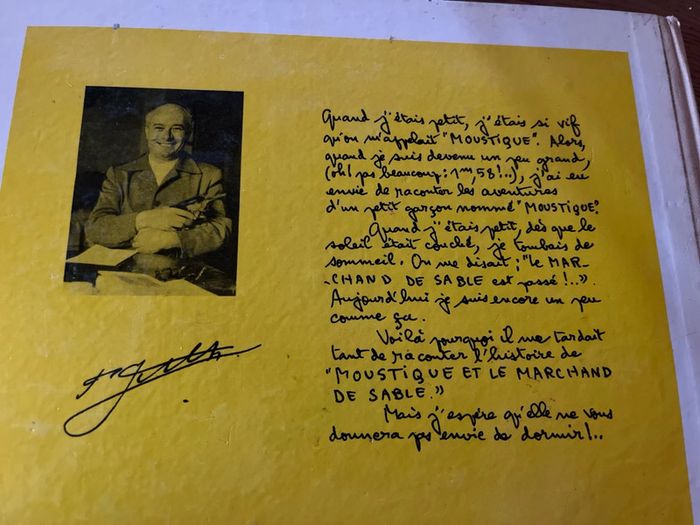 Quand j'étais petit, j'étais si vif
qu'on m'appelait "MOUSTIQUE". Alors,
quand je suis devenu un peu grand,
(oh! pas beaucoup: 1m,58!..), j'ai eu
envie de raconter les aventures
d'un petit garçon nommé "MOUSTIQUE".
Quand j'étais petit, dès que le
soleil était couché, je tombais de
sommeil. On me disait: "le MAR-
-CHAND DE SABLE est passé!.."
Aujourd'hui je suis encore un peu
comme ça.
Voilà pourquoi il me tardait
tant de raconter l'histoire de
"MOUSTIQUE ET LE MARCHAND
DE SABLE."
Mais j'espère qu'elle ne vous
donnera pas envie de dormir!..